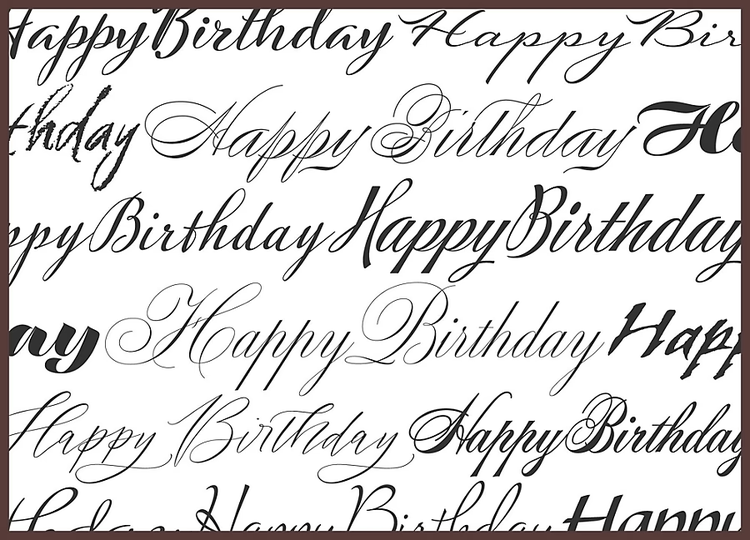 Happy Birthday Happy Bir
thday Happy Birthday Ha
ppy Birthday Happy Birthday
ay Happy Birthday Happ
Happy Birthday Happy Birthday
thday Happy Birthday Happy